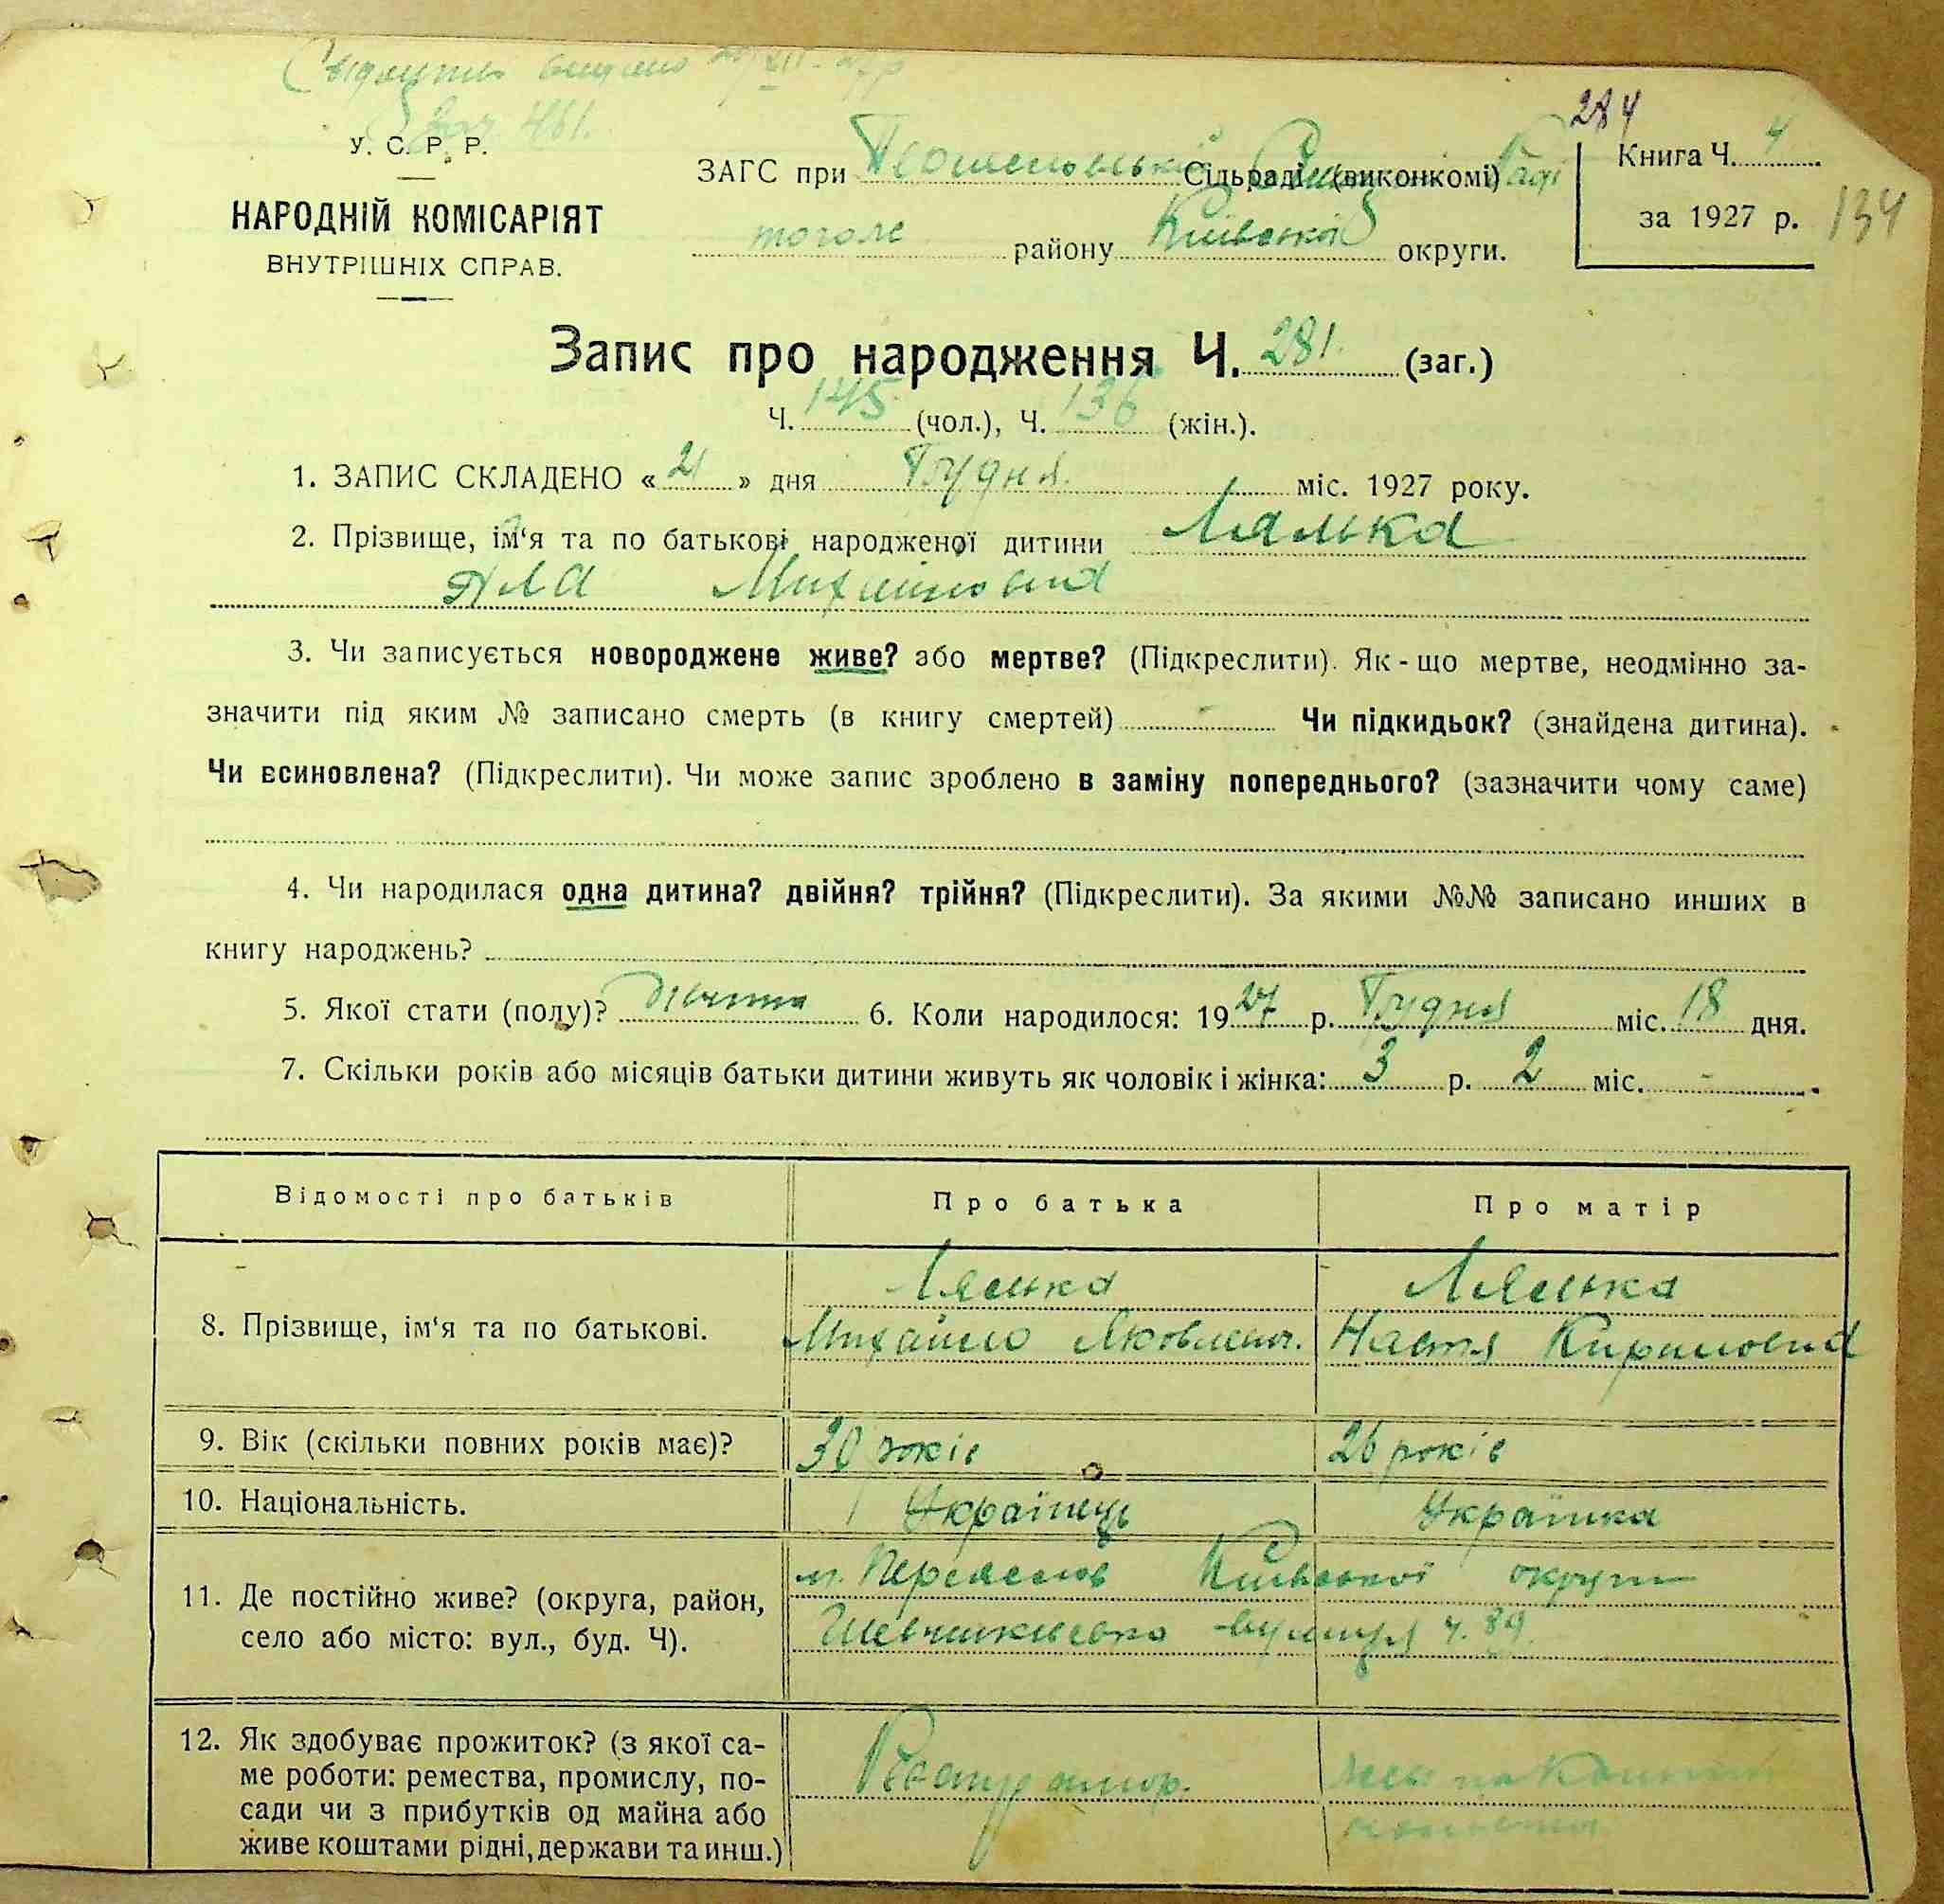 284
У. С. Р. Р.
ЗАГС при Сільраді (виконкомі) Раді
Книга Ч. 4
НАРОДНІЙ КОМІСАРІЯТ
ВНУТРІШНІХ СПРАВ.
району Київської округи.
за 1927 р. 134
Запис про народження Ч. 281. (заг.)
Ч. 145 (чол.), Ч. 136 (жін.).
1. ЗАПИС СКЛАДЕНО « 21 » дня Грудня. міс. 1927 року.
2. Прізвище, ім'я та по батькові народженої дитини Лялька
Яла Михайловна
3. Чи записується новороджене живе? або мертве? (Підкреслити). Як-що мертве, неодмінно за-
значити під яким № записано смерть (в книгу смертей) - Чи підкидьок? (знайдена дитина).
Чи всиновлена? (Підкреслити). Чи може запис зроблено в заміну попереднього? (зазначити чому саме)
4. Чи народилася одна дитина? двійня? трійня? (Підкреслити). За якими №№ записано инших в
книгу народжень?
5. Якої стати (полу)? дівчина 6. Коли народилося: 1927 р. Грудня міс. 18 дня.
7. Скільки років або місяців батьки дитини живуть як чоловік і жінка: 3 р. 2 міс. -
Відомості про батьків Про батька Про матір
8. Прізвище, ім'я та по батькові.
Лялька
Михайло Яковлевич.
Лялька
Настя Кириловна
9. Вік (скільки повних років має)? 30 років 26 років
10. Національність. Українець Українка
11. Де постійно живе? (округа, район,
село або місто: вул., буд. Ч).
м. Переяслов Київської округи
Шевченківська вулиця ч. 89.
12. Як здобуває прожиток? (з якої са-
ме роботи: ремества, промислу, по-
сади чи з прибутків од майна або
живе коштами рідні, держави та инш.)